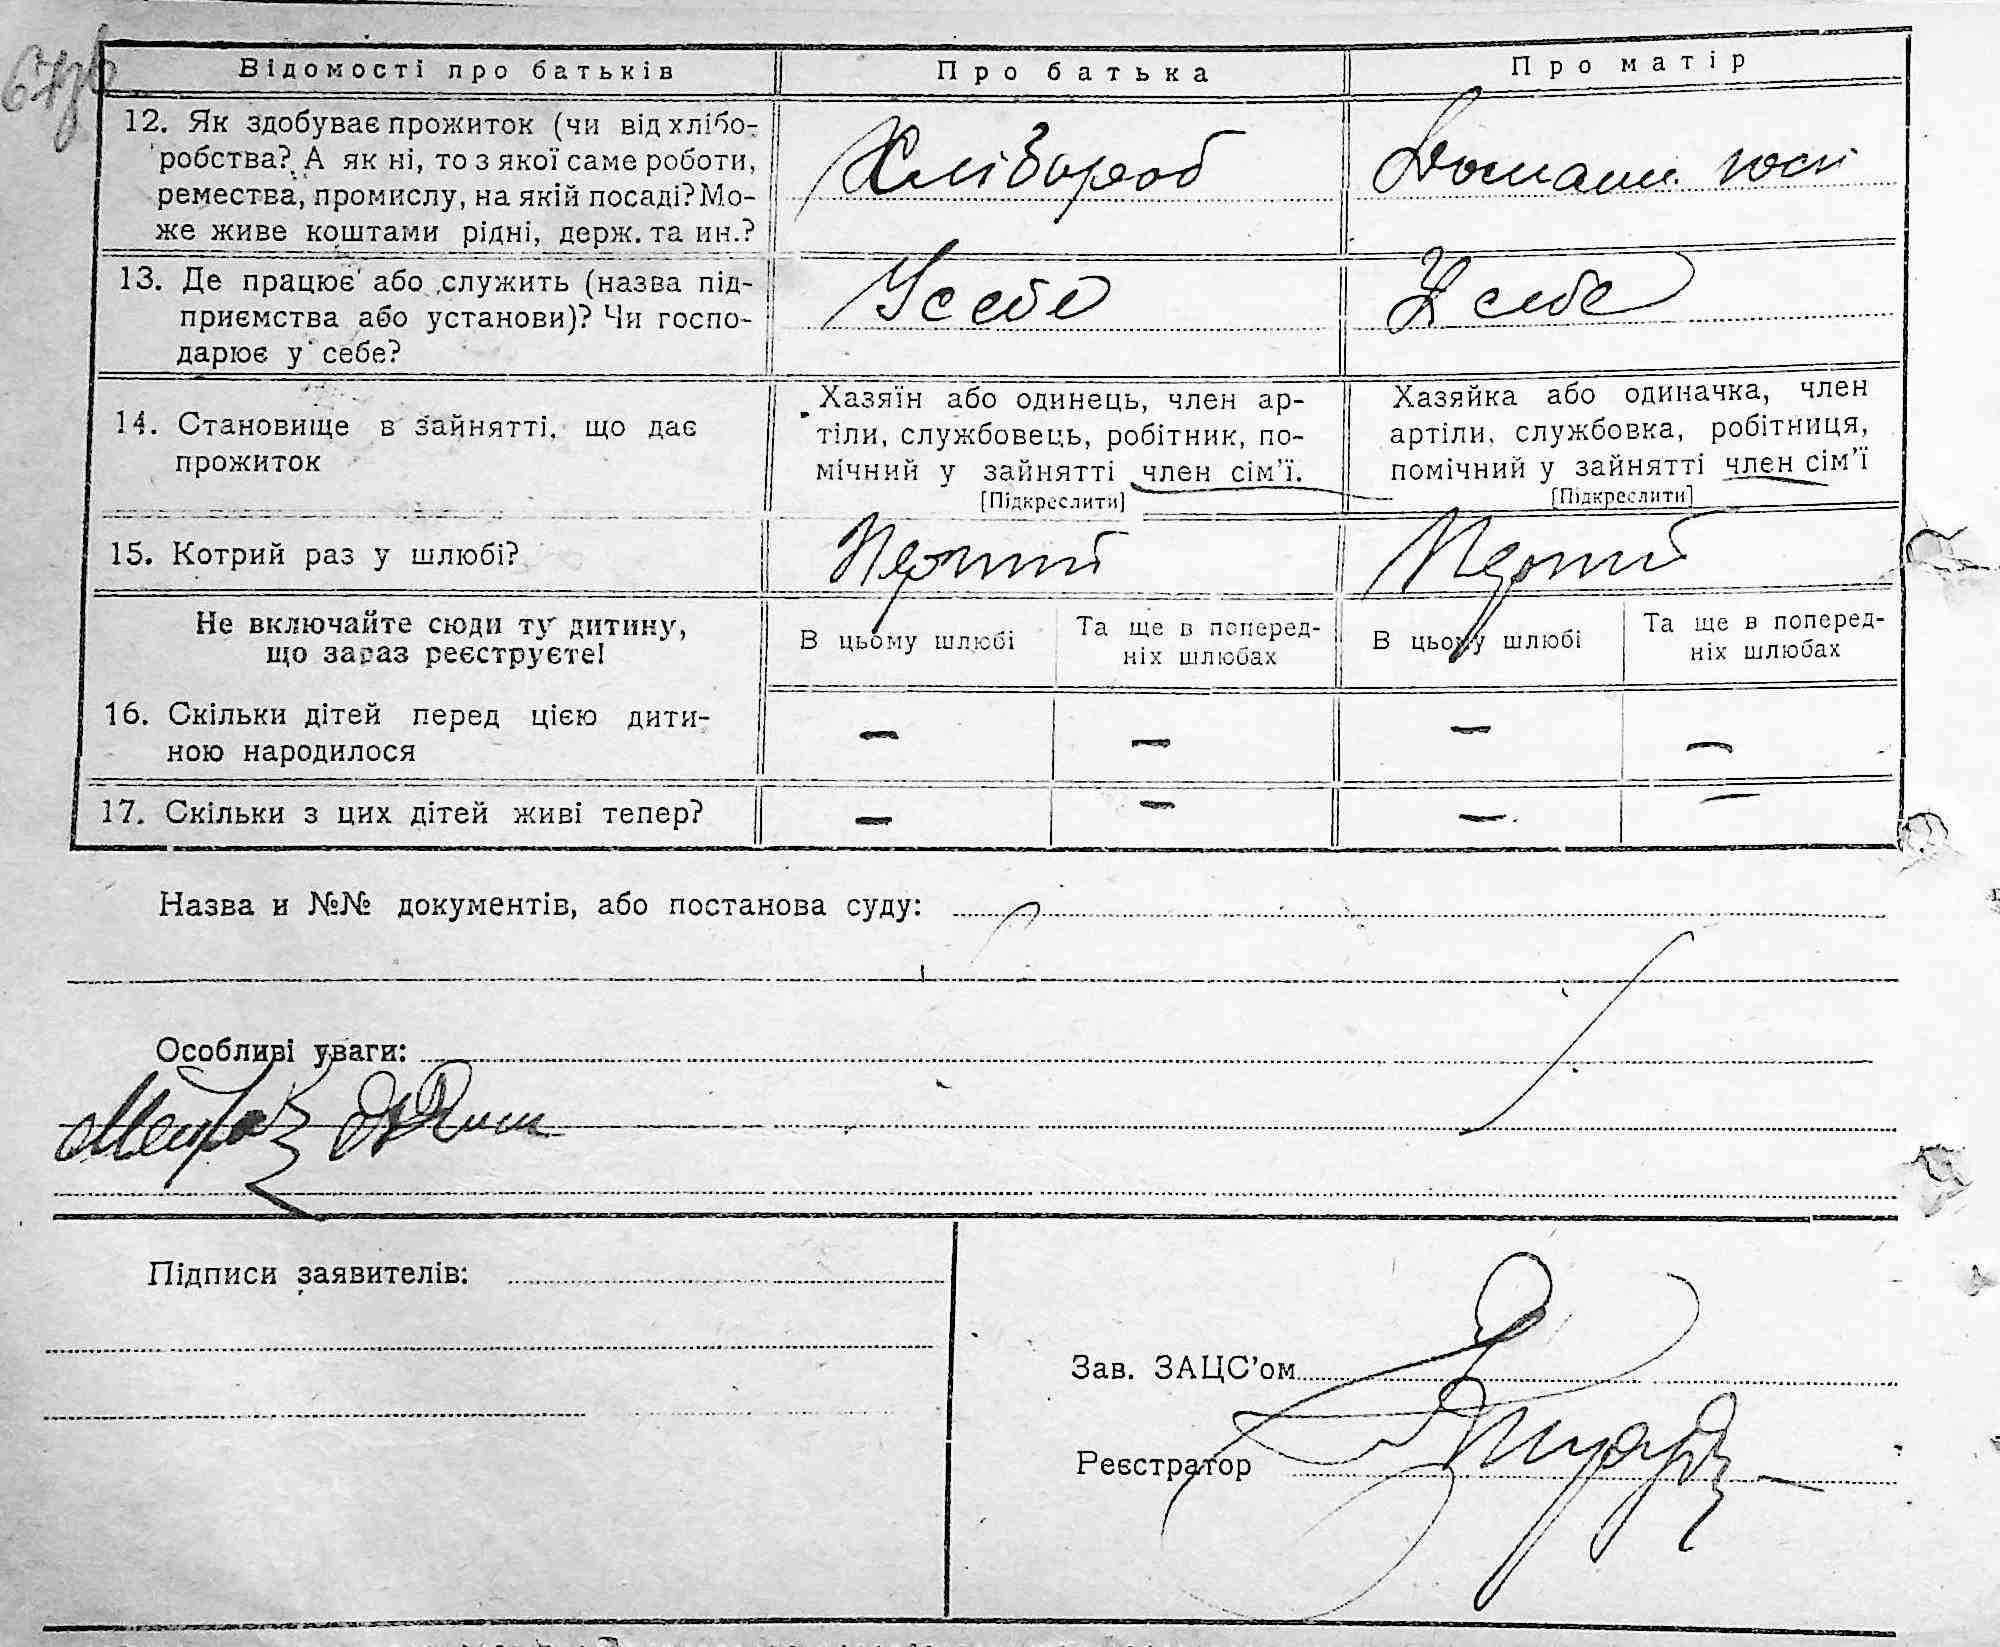 Відомості про батьків
Про батька
Про матір
12. Як здобуває прожиток (чи від хлібо-
робства? А як ні, то з якої саме роботи,
ремества, промислу, на якій посаді? Мо-
же живе коштами рідні, держ. та ин.?
Хлібороб
Домашн госп
13. Де працює або служить (назва під-
приємства або установи)? Чи госпо-
дарює у себе?
У себе
У себе
14. Становище в зайнятті, що дає
прожиток
Хазяїн або одинець, член ар-
тіли, службовець, робітник, по-
мічний у зайнятті член сім'ї.
[Підкреслити]
Хазяйка або одиначка, член
артіли, службовка, робітниця,
помічний у зайнятті член сім'ї
[Підкреслити]
15. Котрий раз у шлюбі?
Перший
Перший
Не включайте сюди ту дитину,
що зараз реєструєте!
В цьому шлюбі
Та ще в поперед-
ніх шлюбах
В цьому шлюбі
Та ще в поперед-
ніх шлюбах
16. Скільки дітей перед цією дити-
ною народилося
— — — —
17. Скільки з цих дітей живі тепер?
— — — —
Назва и №№ документів, або постанова суду:
Особливі уваги:
Підписи заявителів:
Зав. ЗАЦС'ом
Реєстратор